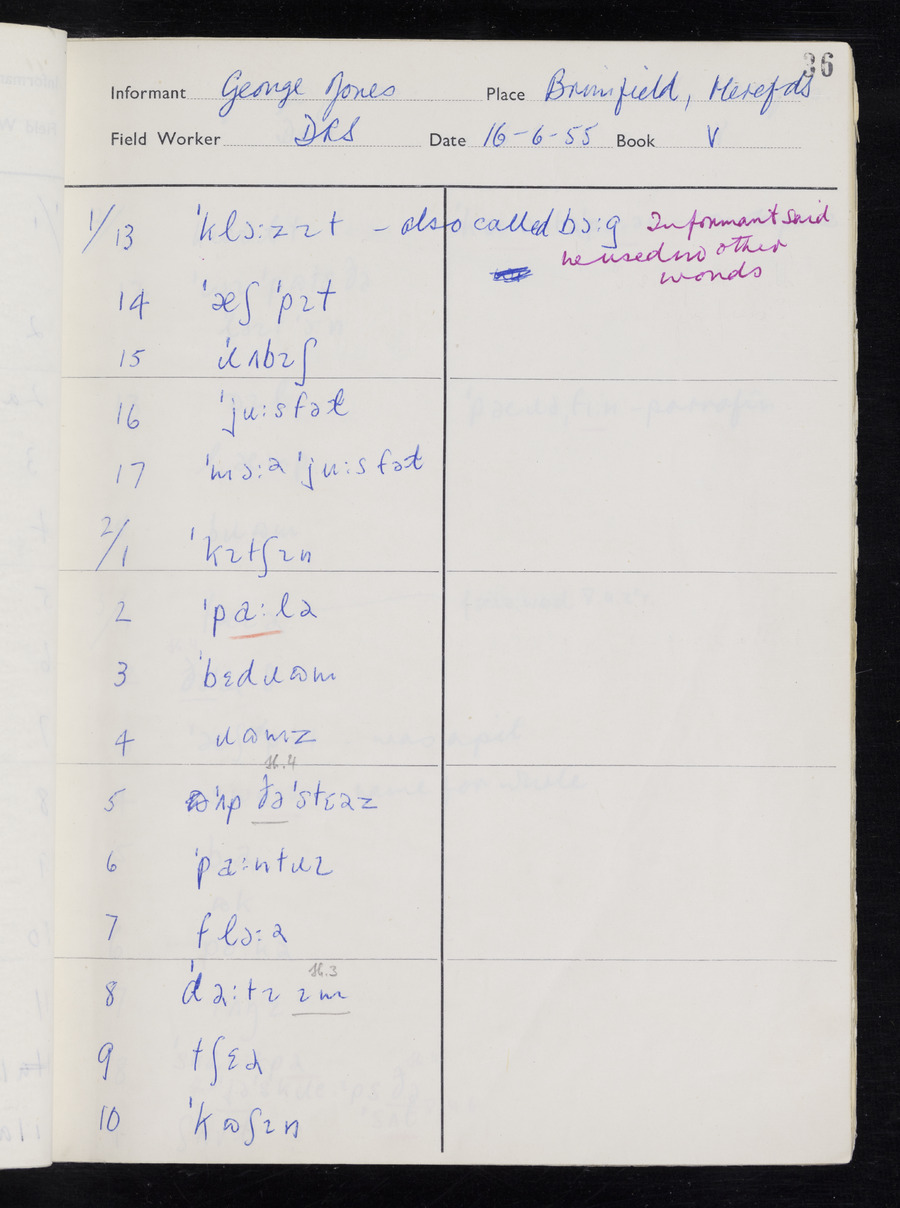 36
Informant George Jones Place Brimfield, Herefds
Field Worker DRS Date 16-6-55 Book V
1/13 ˈklɔːzɪt – also called bɔːg Informant said
he used no other
words
14 ˈæʃ ˈpɪt
15 ˈɹʌbɪʃ
16 ˈjuːsfəɫ
17 ˈmɔːə ˈjuːsfəɫ
2/1 ˈkɪtʃɪn
2 ˈpaːlə
3 ˈbɛdɹʊm
4 ɹʊmz
16.4
5 ˈʌp ðə ˈstɛəz
6 ˈpaːntɹɪ
7 flɔːə
16.3
8 ˈdəːtɪ ɪm
9 tʃɛə
10 ˈkʊʃɪn